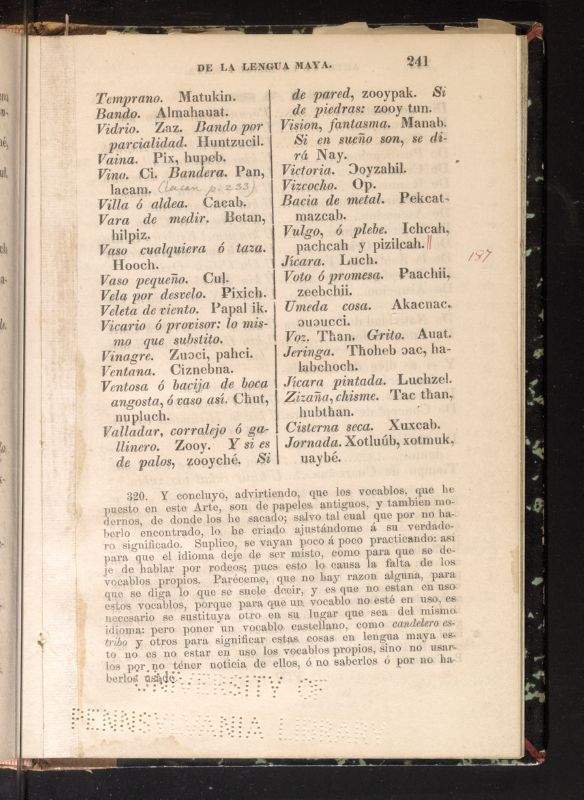 DE LA LENGUA MAYA. 241
Temprano. Matukin.
Bando. Almahauat.
Vidrio. Zaz. Bando por
parcialidad. Huntzucil.
Vaina. Pix, hupeb.
Vino. Ci. Bandera. Pan,
lacam. (lacan p. 233)
Villa ó aldea. Cacab.
Vara de medir. Betan,
hilpiz.
Vaso cualquiera ó taza.
Hooch.
Vaso pequeño. Cul.
Vela por desvelo. Pixich.
Veleta de viento. Papal ik.
Vicario ó provisor: lo mis-
mo que substito.
Vinagre. Zuɔci, pahci.
Ventana. Ciznebna.
Ventosa ó bacija de boca
angosta, ó vaso así. Chut,
nupluch.
Valladar, corralejo ó ga-
llinero. Zooy. Y si es
de palos, zooyché. Si
de pared, zooypak. Si
de piedras: zooy tun.
Vision, fantasma. Manab.
Si en sueño son, se di-
rá Nay.
Victoria. Ɔoyzahil.
Vizcocho. Op.
Bacia de metal. Pekcat-
mazcab.
Vulgo, ó plebe. Ichcah,
pachcah y pizilcah. ||
187
Jícara. Luch.
Voto ó promesa. Paachii,
zeebchii.
Umeda cosa. Akacnac,
ɔuɔucci.
Voz. Than. Grito. Auat.
Jeringa. Thoheb ɔac, ha-
labchoch.
Jícara pintada. Luchzel.
Zizaña, chisme. Tac than,
hubthan.
Cisterna seca. Xuxcab.
Jornada. Xotluúb, xotmuk,
uaybé.
320. Y concluyo, advirtiendo, que los vocablos, que he
puesto en este Arte, son de papeles antiguos, y tambien mo-
dernos, de donde los he sacado; salvo tal cual que por no ha-
berlo encontrado, lo he criado ajustándome á su verdade-
ro significado. Suplico, se vayan poco á poco practicando: así
para que el idioma deje de ser misto, como para que se de-
je de hablar por rodeos; pues esto lo causa la falta de los
vocablos propios. Paréceme, que no hay razon alguna, para
que se diga lo que se suele decir, y es que no estan en uso
estos vocablos, porque para que un vocablo no esté en uso, es
necesario se sustituya otro en su lugar que sea del mismo
idioma: pero poner un vocablo castellano, como candelero es-
tribo y otros para significar estas cosas en lengua maya es-
to no es no estar en uso los vocablos propios, sino no usar-
los por no téner noticia de ellos, ó no saberlos ó por no ha-
berlos usado.
UNIVERSITY OF
PENNSYLVANIA LIBRARY